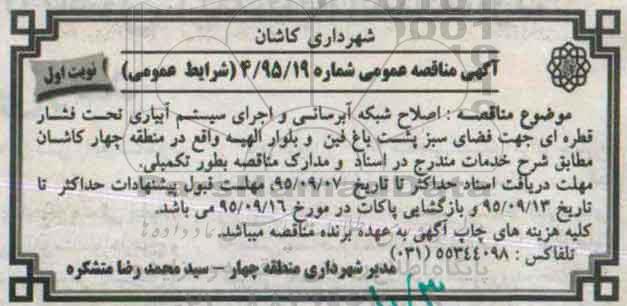 شهرداری کاشان
آگهی مناقصه عمومی شماره ۴/۹۵/۱۹ (شرایط عمومی)
نوبت اول
موضوع مناقصه : اصلاح شبکه آبرسانی و اجرای سیستم آبیاری تحت فشار
قطره ای جهت فضای سبز پشت باغ فین و بلوار الهیه واقع در منطقه چهار کاشان
مطابق شرح خدمات مندرج در اسناد و مدارک مناقصه بطور تکمیلی.
مهلت دریافت اسناد حداکثر تا تاریخ ۹۵/۰۹/۰۷، مهلت قبول پیشنهادات حداکثر تا
تاریخ ۹۵/۰۹/۱۳ و بازگشایی پاکات در مورخ ۹۵/۰۹/۱۶ می باشد.
کلیه هزینه های چاپ آگهی به عهده برنده مناقصه میباشد.
تلفاکس : ۵۵۳۴۴۰۹۸ (۰۳۱)
مدیر شهرداری منطقه چهار – سید محمد رضا متشکره